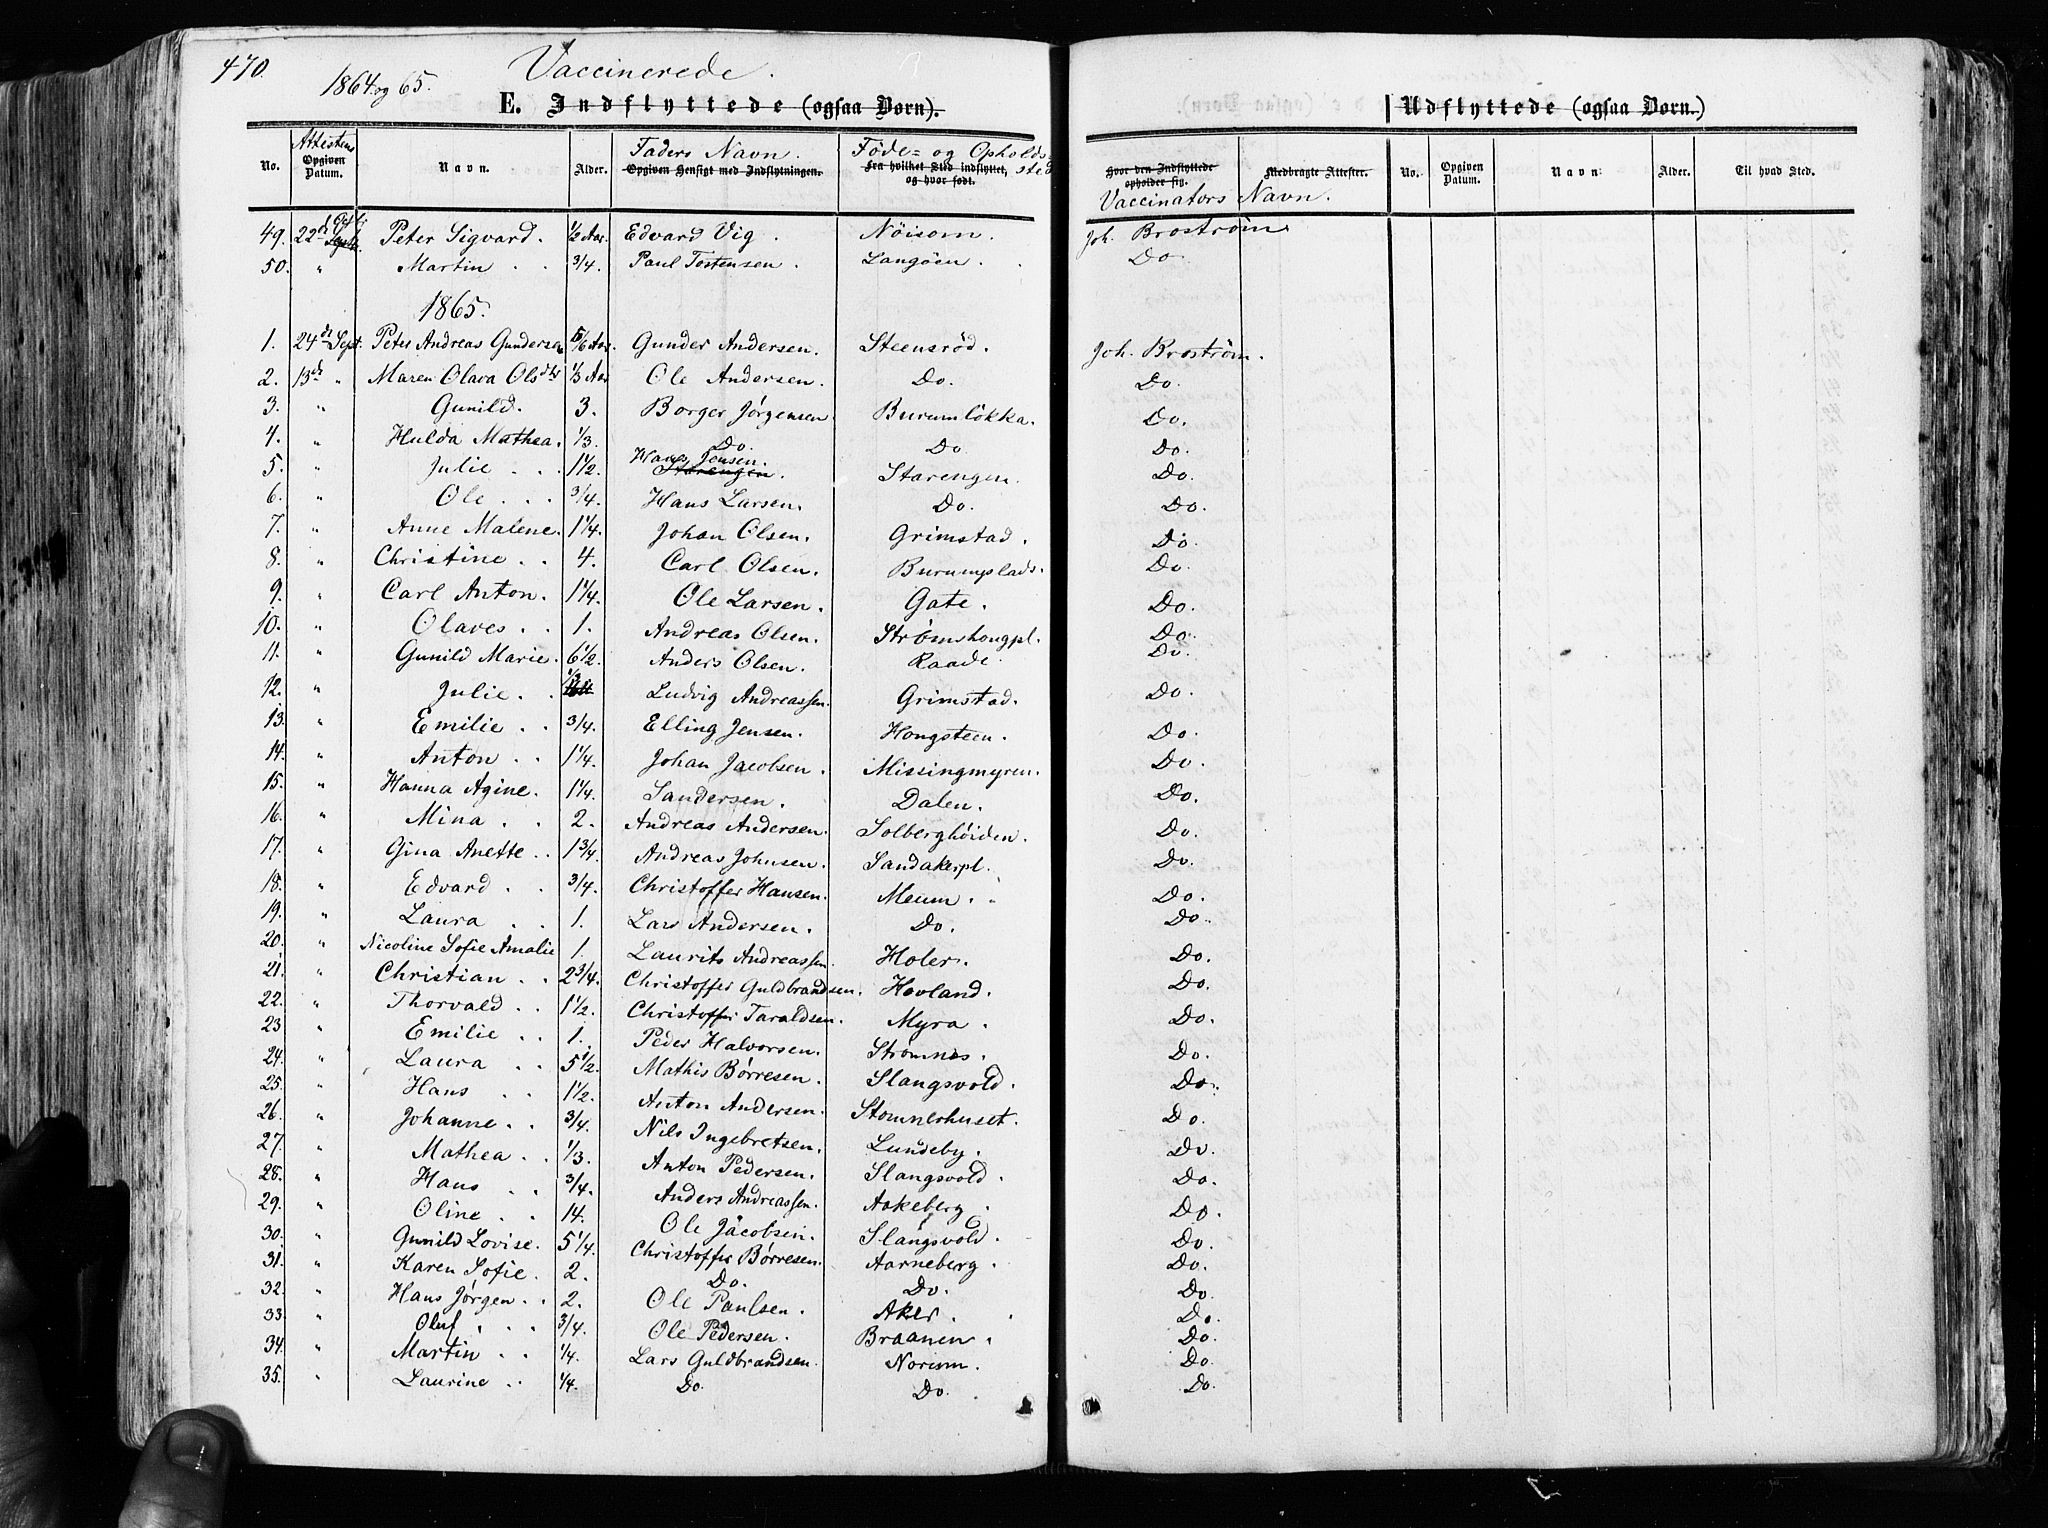 470.
Vaccinerede.
1864 og 65.
E. Indflyttede (ogsaa Børn).
Udflyttede (ogsaa Børn.)
No. Attestens Opgiven Datum. Navn. Alder. Faders Navn. Opgiven Hensigt med Indflytningen. Føde- og Opholdssted Fra hvilket Sted indflyttet, og hvor født. Hvor den Indflyttede opholder sig. Vaccinators Navn. Medbragte Attester. No. Opgiven Datum. Navn: Alder. Til hvad Sted.
49. 22d Octbr Septb. Peter Sigvard. 1/2 Aar. Edvard Vig. Nöisom. Joh. Broström
50. " Martin . . 3/4. Paul Tostensen. Langöen. Do.
1865.
1. 24de Sept. Peter Andreas Gundersen 5/6 Aar. Gunder Andersen. Steensröd. Joh. Broström.
2. 13de " Maren Olava Olsdtr 1/3 Aar Ole Andersen. Do. Do.
3. " Gunild. 3. Borger Jørgensen Burumlökka. Do.
4. " Hulda Mathea. 1/3. Do. Do. Do.
5. " Julie . . . 1 1/2. Hans Jensen. Starengen. Starengen. Do.
6. " Ole . . . 3/4. Hans Larsen. Do. Do.
7. " Anne Malene. 1 1/4. Johan Olsen. Grimstad. Do.
8. " Christine . . 4. Carl Olsen. Burumplads. Do.
9. " Carl Anton. 1 1/4. Ole Larsen. Gate. Do.
10. " Olaves . . 1. Andreas Olsen. Strømshougpl. Do.
11. " Gunild Marie. 6 1/2. Anders Olsen. Raade. Do.
12. " Julie. . 1/2 Ludvig Andreassen. Grimstad. Do.
13. " Emilie . . 3/4. Elling Jensen. Hougsteen. Do.
14. " Anton . . 1 1/4. Johan Jacobsen. Missingmyren. Do.
15. " Hanna Agine. 1 1/4. Sandersen. Dalen. Do.
16. " Mina . . 2. Andreas Andersen. Solberghöiden. Do.
17. " Gina Anette . . 1 3/4. Andreas Johnsen. Sandakerpl. Do.
18. " Edvard . . 3/4. Christoffer Hansen. Meum. Do.
19. " Laura . . 1. Lars Andersen. Do. Do.
20. " Nicoline Sofie Amalie 1. Laurits Andreassen. Holer. Do.
21. " Christian . . 2 3/4. Christoffer Guldbrandsen. Hovland. Do.
22. " Thorvald . . 1 1/2. Christoffer Taraldsen. Myra. Do.
23 " Emilie . . 1. Peder Halvorsen. Strømnes. Do.
24. " Laura . . 5 1/2. Mathis Børresen. Slangsvold. Do.
25. " Hans . . 1 1/2. Anton Andersen. Stomnerhuset. Do.
26. " Johanne . . 3/4. Nils Ingebretsen. Lundeby. Do.
27. " Mathea . . 1/3. Anton Pedersen. Slangsvold. Do.
28. " Hans . . 3/4. Anders Andreassen. Askeberg. Do.
29. " Oline . . 14. Ole Jacobsen. Slangsvold. Do.
30. " Gunild Lovise. 5 1/4. Christoffer Børresen. Aarneberg. Do.
31. " Karen Sofie. 2. Do. Do. Do.
32. " Hans Jørgen. . 2. Ole Paulsen. Aker. Do.
33. " Oluf . . . 3/4. Ole Pedersen. Braanen. Do.
34. " Martin . . 1/4. Lars Guldbrandsen. Norum. Do.
35. " Laurine . . 1/4. Do. Do. Do.